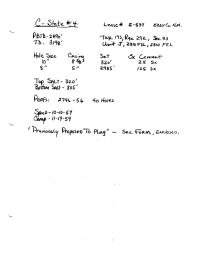 C-State #4 Lease # E-537 Eddy Co. N.M.
PBTD-2896'
T.D. 3198' Unit J, 2310 FSL, 2310 FEL
Hole Size Casing Set Sx Cement
10" 8 5/8" 320' 25 Sx
8" 5" 2985' 125 Sx
Top Salt - 320'
Bottom Salt - 835'
Perfs: 2746-56 40 Holes
Spud - 10-10-59
Comp - 11-19-59
"Previously Prepared To Plug" - See Form, Enclosed.